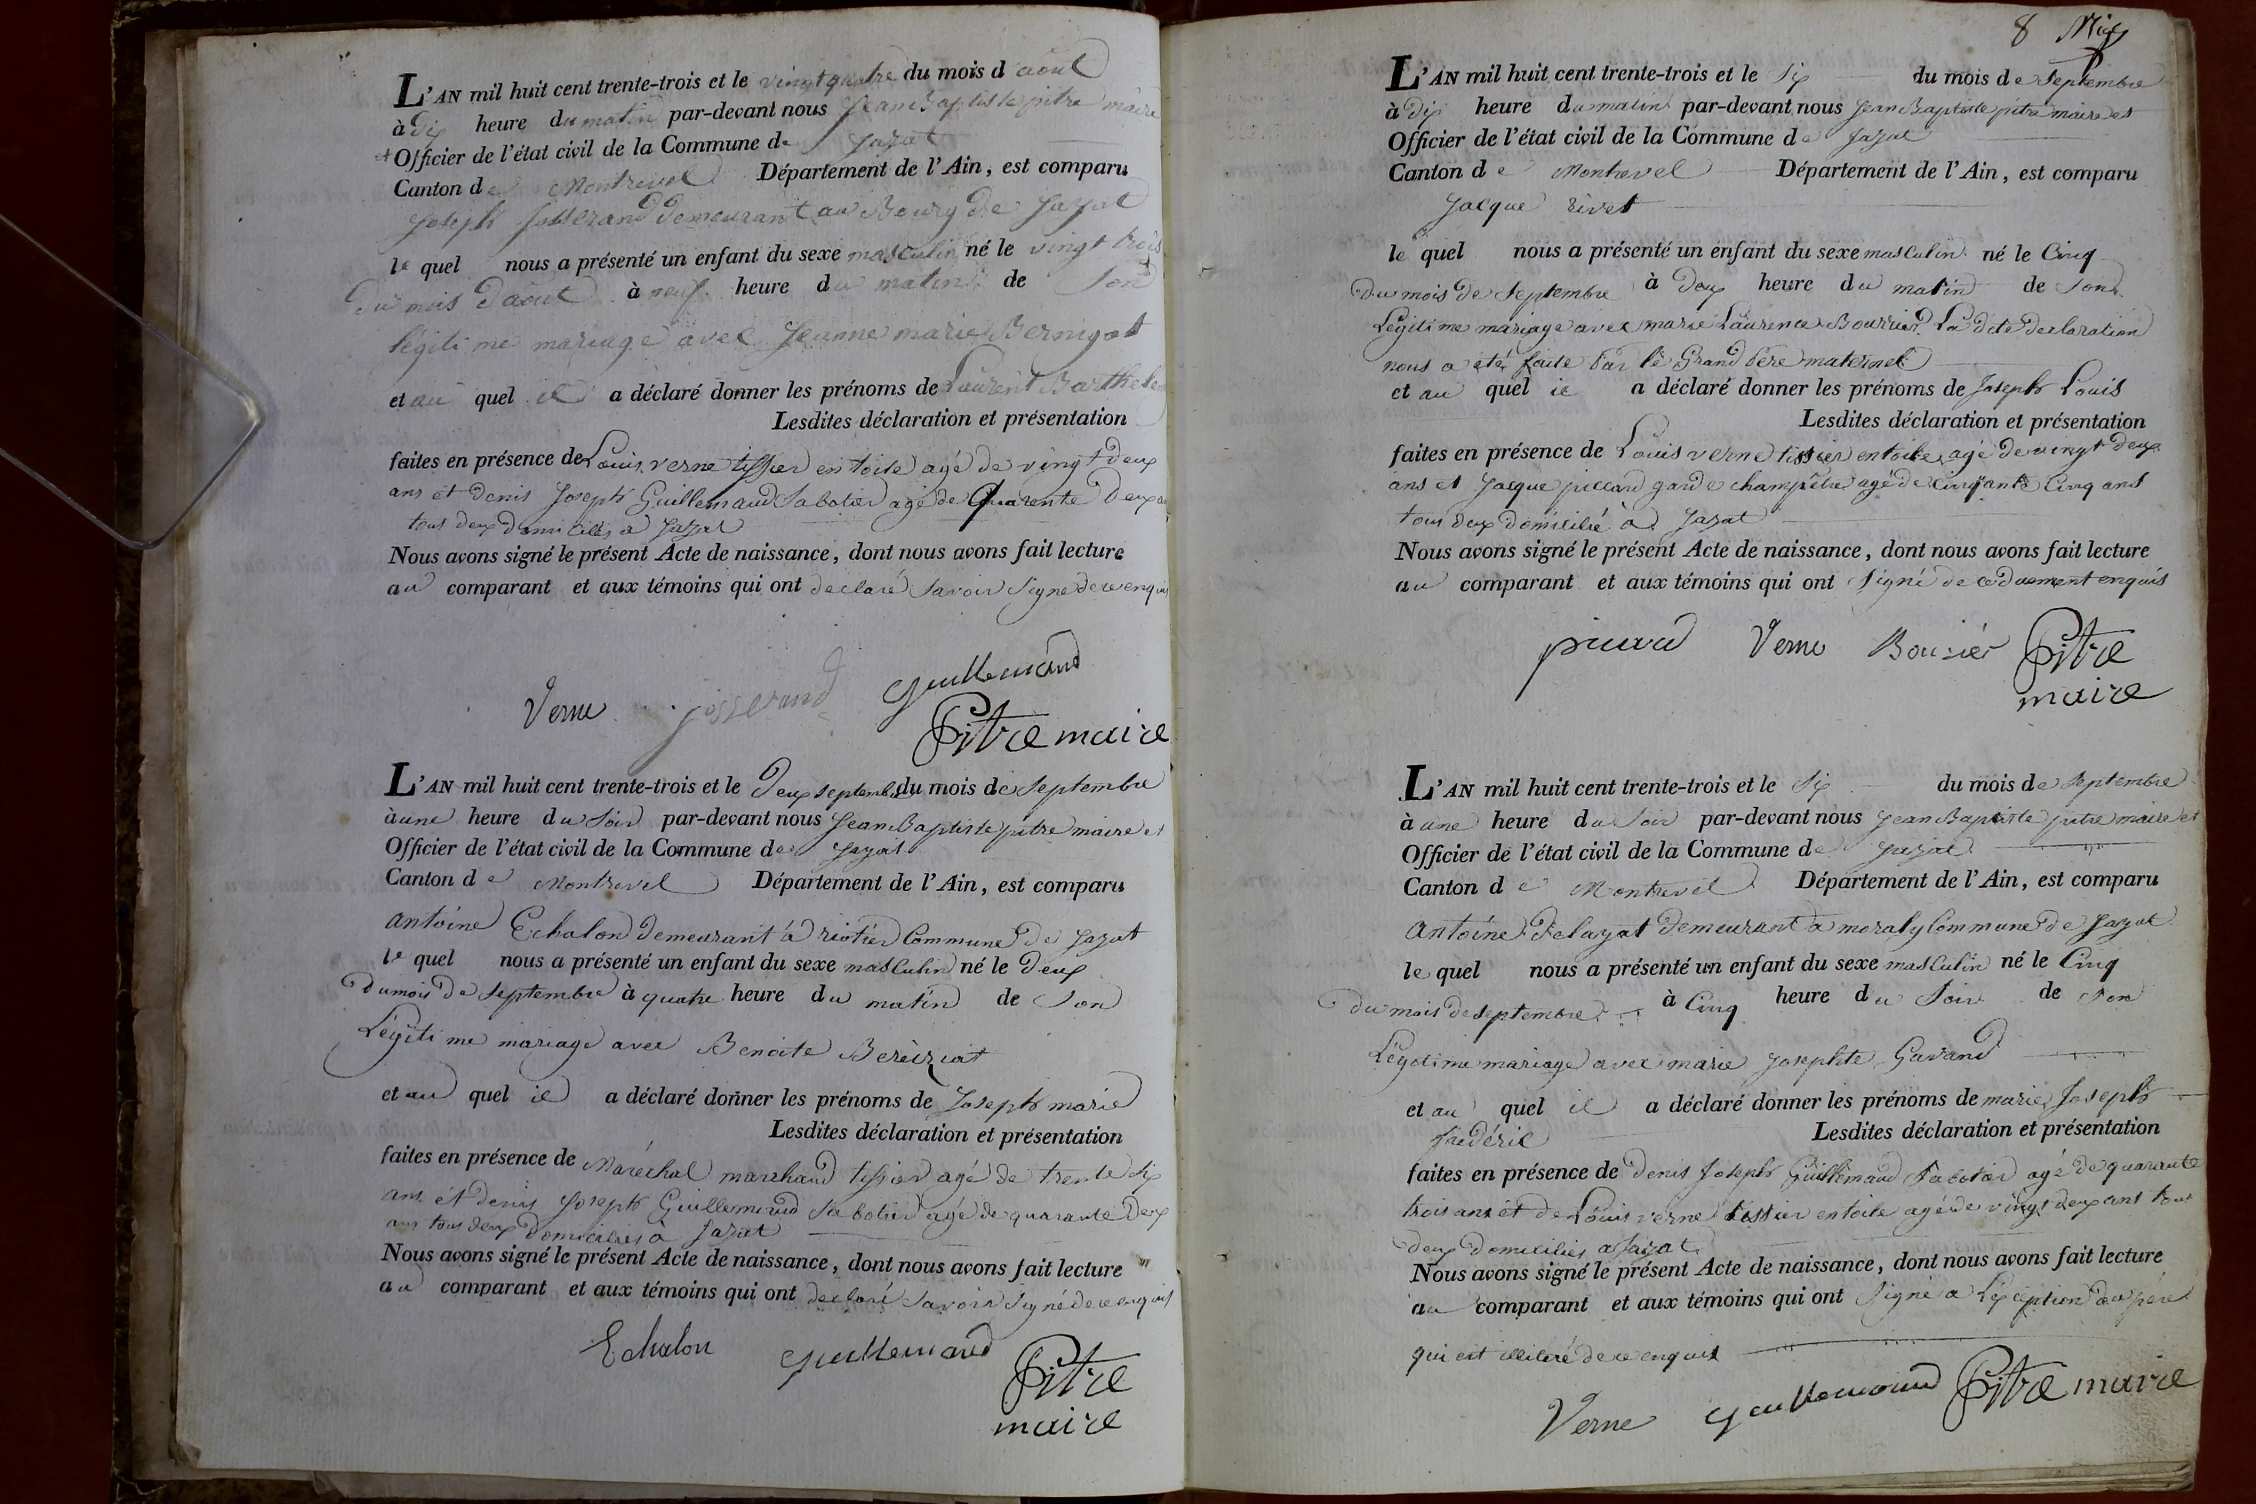 L'AN mil huit cent trente-trois et le vingt quatre du mois d'aout
à dix heure du matin par-devant nous Jean Baptiste pitre maire
et Officier de l'état civil de la Commune de Jayat
Canton de Montrevel Département de l'Ain, est comparu
Joseph Josserand demeurant au Bourg de Jayat
le quel nous a présenté un enfant du sexe masculin né le vingt trois
du mois d'aout à neuf heure du matin de Son
légitime mariage avec Jeanne marie Bernigot
et au quel il a déclaré donner les prénoms de Laurent
Lesdites déclaration et présentation
faites en présence de Louis verne tissier en toile agé de vingt deux
ans et denis Joseph Guillemaud Sabotier agé de Quarente Deux
tous deux domiciliés à Jayat
Nous avons signé le présent Acte de naissance, dont nous avons fait lecture
au comparant et aux témoins qui ont declaré Savoir Signe de ce enquis
Verne josserand guillemaud
Pitre maire
L'AN mil huit cent trente-trois et le Deux septembre du mois de Septembre
à une heure du Soir par-devant nous Jean Baptiste pitre maire et
Officier de l'état civil de la Commune de Jayat
Canton de Montrevel Département de l'Ain, est comparu
antoine Echalon demeurant à riotier Commune de Jayat
le quel nous a présenté un enfant du sexe masculin né le deux
du mois de Septembre à quatre heure du matin de Son
Légitime mariage avec Benoite Bereiziat
et au quel il a déclaré donner les prénoms de Joseph marie
Lesdites déclaration et présentation
faites en présence de Maréchal marchand tissier agé de trente Six
ans et denis Joseph Guillemaud Sabotier agé de quarante Deux
ans tous deux domiciliés à Jayat
Nous avons signé le présent Acte de naissance, dont nous avons fait lecture
au comparant et aux témoins qui ont declaré Savoir Signé de ce enquis
Echalon guillemaud Pitre
maire
8
L'AN mil huit cent trente-trois et le Six du mois de Septembre
à dix heure du matin par-devant nous Jean Baptiste pitre maire et
Officier de l'état civil de la Commune de Jayat
Canton de Montrevel Département de l'Ain, est comparu
Jacque rivet
le quel nous a présenté un enfant du sexe masculin né le Cinq
du mois de Septembre à deux heure du matin de Son
Légitime mariage avec marie Laurence Bourrier La dite declaration
nous a été faite par le Grand père maternel
et au quel il a déclaré donner les prénoms de Joseph Louis
Lesdites déclaration et présentation
faites en présence de Louis verne tissier en toile agé de vingt deux
ans et Jacque piccard garde champêtre agé de cinquante Cinq ans
tous deux domicilié à Jayat
Nous avons signé le présent Acte de naissance, dont nous avons fait lecture
au comparant et aux témoins qui ont Signé de ce duement enquis
picard Verne Bourier Pitre
maire
L'AN mil huit cent trente-trois et le Six du mois de Septembre
à une heure du Soir par-devant nous Jean Baptiste pitre maire et
Officier de l'état civil de la Commune de Jayat
Canton de Montrevel Département de l'Ain, est comparu
Antoine Felayat demeurant à moraly Commune de Jayat
le quel nous a présenté un enfant du sexe masculin né le Cinq
du mois de septembre à Cinq heure du Soir de Son
Légitime mariage avec marie Josephte Gavand
et au quel il a déclaré donner les prénoms de marie Joseph
fredéric Lesdites déclaration et présentation
faites en présence de denis Joseph Guillemaud Sabotier agé de quarante
trois ans et de Louis verne tissier en toile agé de vingt deux ans tous
deux domiciliés à Jayat
Nous avons signé le présent Acte de naissance, dont nous avons fait lecture
au comparant et aux témoins qui ont Signé a L'exception du père
qui est illiteré de ce enquis
Verne guillemaud Pitre maire